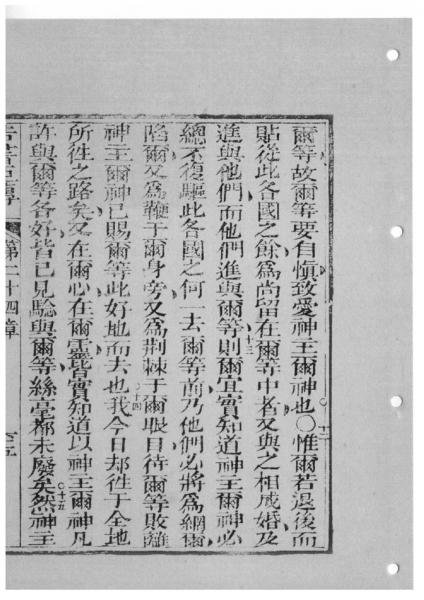 爾等故爾等要自愼致愛神主爾神也○惟爾若退後而
十二
貼從此各國之餘為尚留在爾等中者又與之相成婚及
進與他們而他們進與爾等則爾宜實知道神主爾神必
十三
總不復驅此各國之何一去爾等前乃他們必將為網爾
陷爾又為鞭于爾身旁又為荆棘于爾眼目待爾等敗離
神主爾神已賜爾等此好地而去也我今日却徃于全地
十四
所徃之路矣又在爾心在爾靈皆實知道以神主爾神凡
許與爾等各好皆已見驗與爾等絲毫都未廢矣然神主
十五
第二十四章